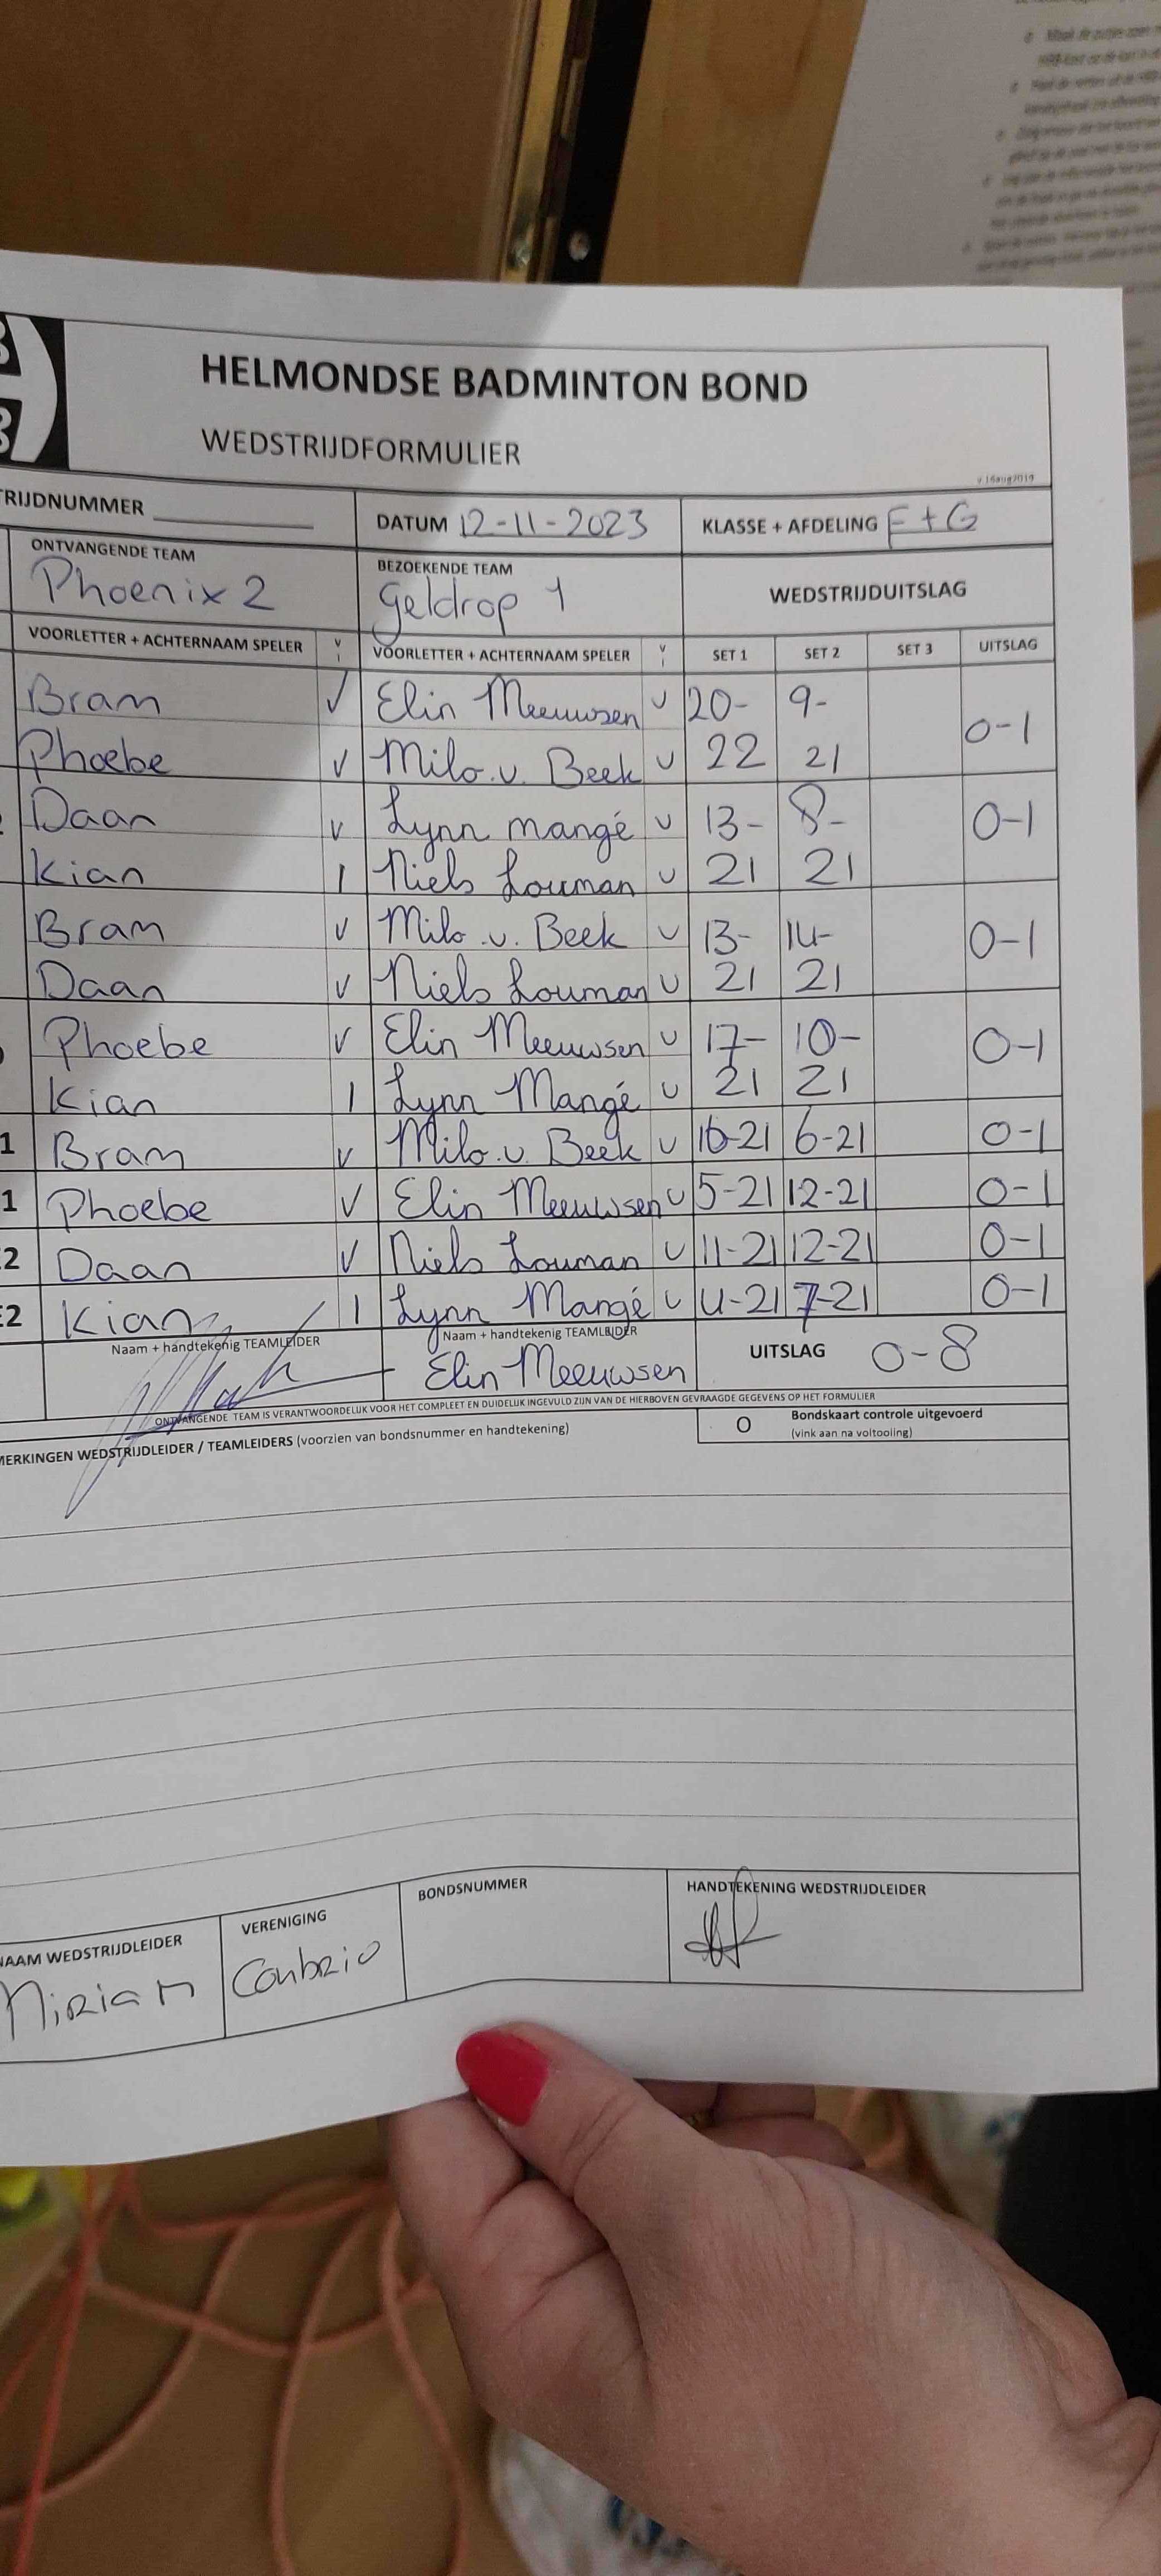 HELMONDSE BADMINTON BOND
WEDSTRIJDFORMULIER
v.16aug2019
TRIJDNUMMER
DATUM 12-11-2023
KLASSE + AFDELING F+G
ONTVANGENDE TEAM
Phoenix 2
BEZOEKENDE TEAM
Geldrop 1
WEDSTRIJDUITSLAG
VOORLETTER + ACHTERNAAM SPELER V I VOORLETTER + ACHTERNAAM SPELER V I SET 1 SET 2 SET 3 UITSLAG
Bram V Elin Meeuwsen V 20- 9- 0-1
Phoebe V Milo v. Beek V 22 21
Daan V Lynn Mangé V 13- 8- 0-1
Kian I Niels Louman V 21 21
Bram V Milo v. Beek V 13- 14- 0-1
Daan V Niels Louman V 21 21
Phoebe V Elin Meeuwsen V 17- 10- 0-1
Kian I Lynn Mangé V 21 21
1 Bram V Milo v. Beek V 16-21 6-21 0-1
1 Phoebe V Elin Meeuwsen V 5-21 12-21 0-1
2 Daan V Niels Louman V 11-21 12-21 0-1
E2 Kian I Lynn Mangé V 4-21 7-21 0-1
Naam + handtekenig TEAMLEIDER
Naam + handtekenig TEAMLEIDER
Elin Meeuwsen
UITSLAG 0-8
ONTVANGENDE TEAM IS VERANTWOORDELIJK VOOR HET COMPLEET EN DUIDELIJK INGEVULD ZIJN VAN DE HIERBOVEN GEVRAAGDE GEGEVENS OP HET FORMULIER
MERKINGEN WEDSTRIJDLEIDER / TEAMLEIDERS (voorzien van bondsnummer en handtekening)
O Bondskaart controle uitgevoerd
(vink aan na voltooiing)
NAAM WEDSTRIJDLEIDER
Miriam
VERENIGING
Conbrio
BONDSNUMMER
HANDTEKENING WEDSTRIJDLEIDER